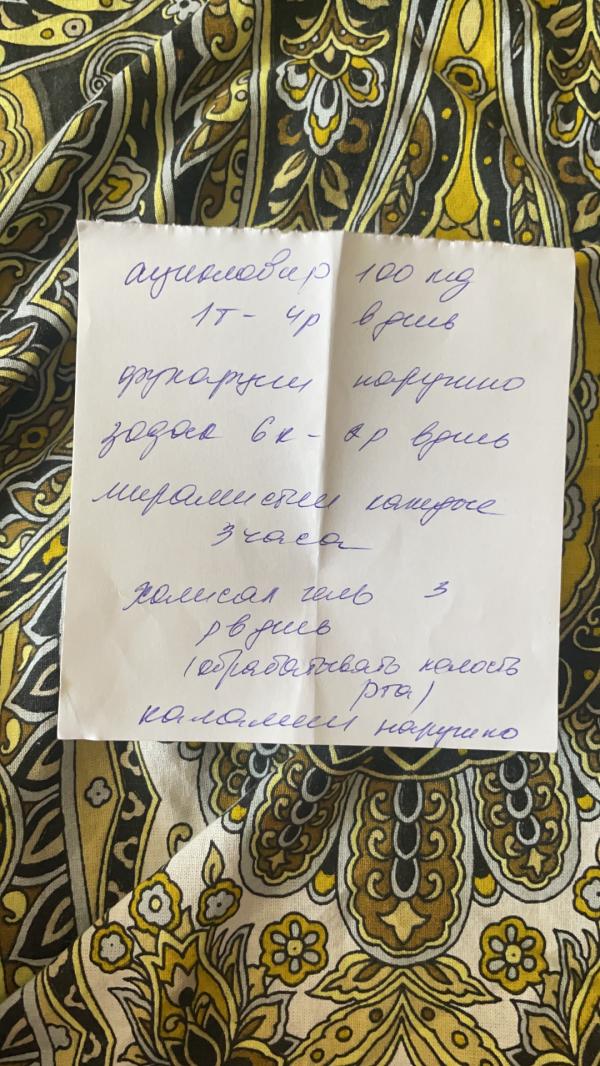 ациловир 100 мд
1т - 4р в день
фукарцин наружно
зодак 6к - 2р в день
мирамистин каждые
3 часа
холисал гель 3
р в день
(обрабатывать полость
рта)
каламин наружно